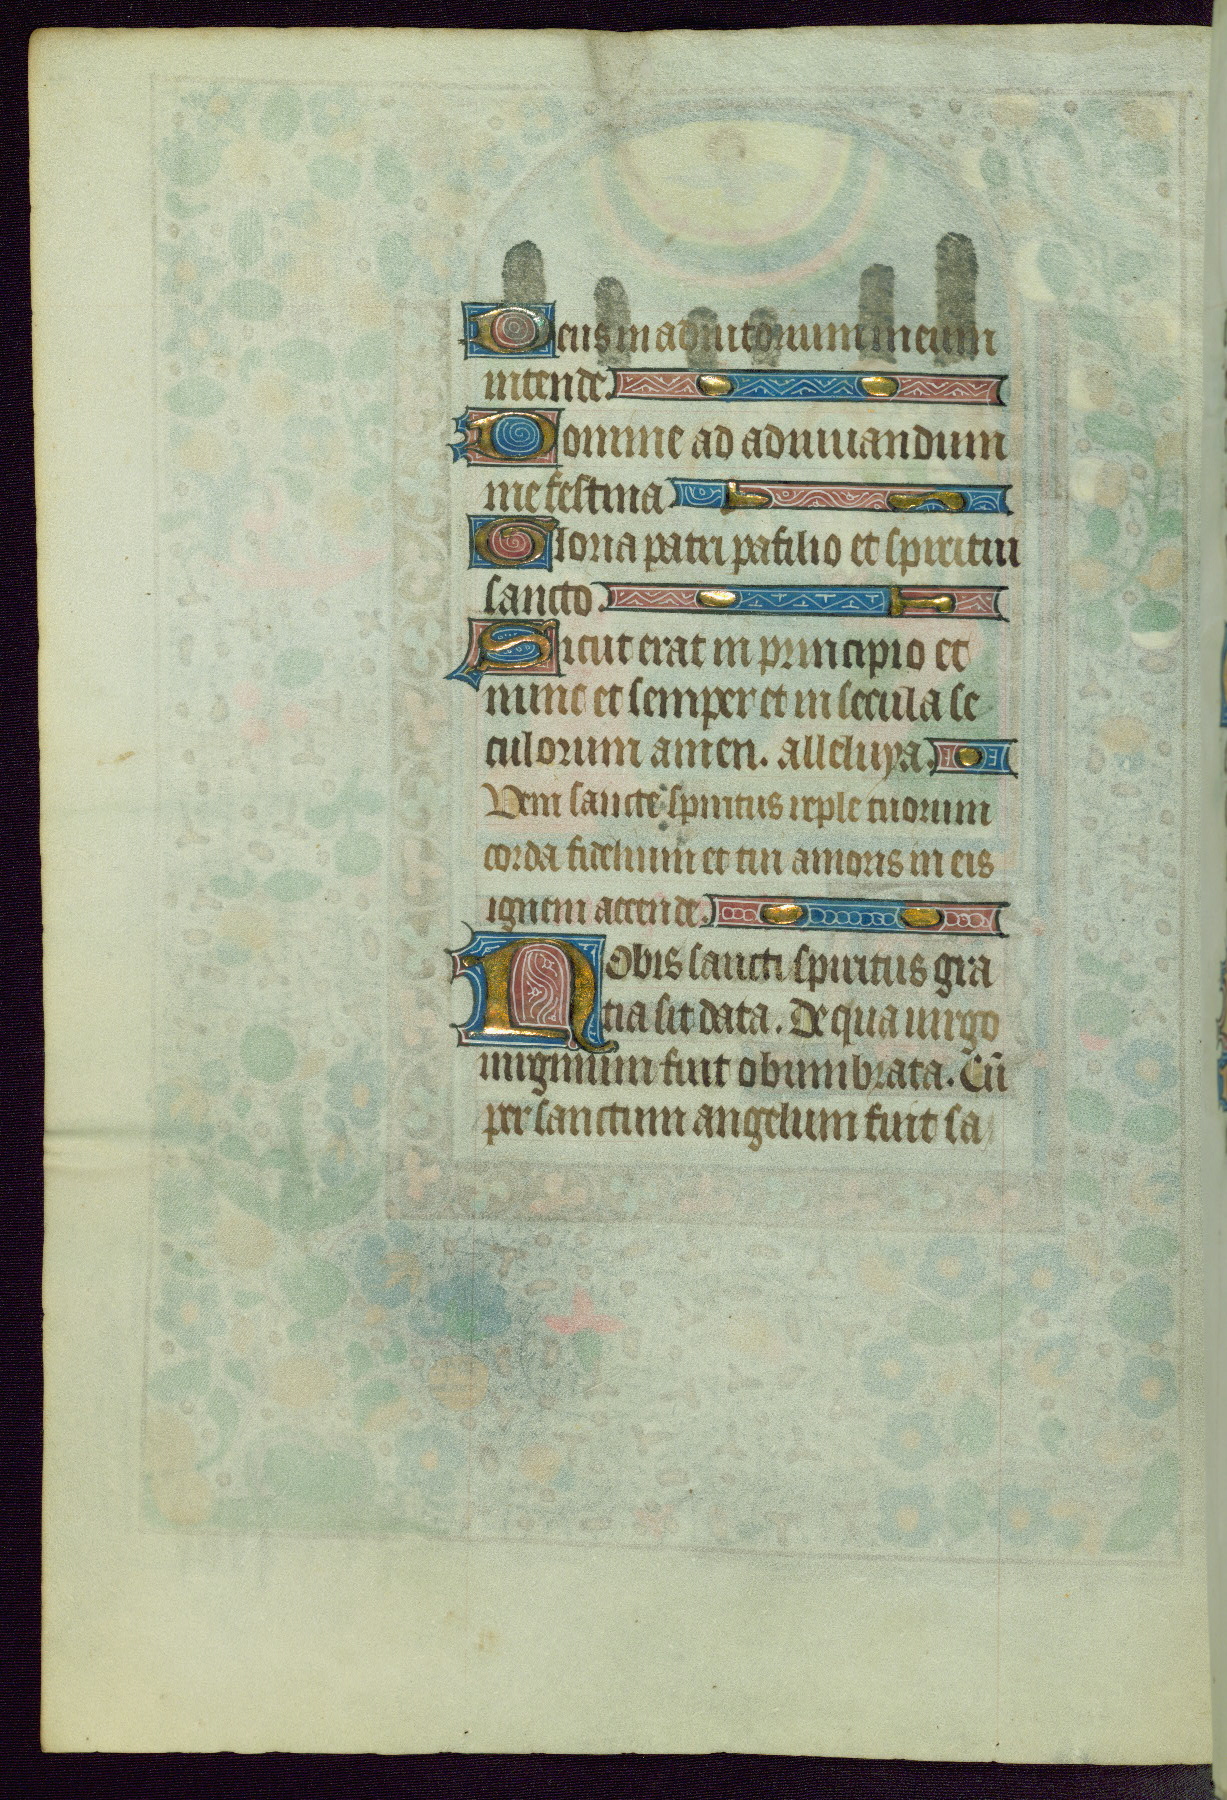 Deus in adiutorium meum
intende.
Domine ad adiuuandum
me festina
Gloria patri pa filio et spiritui
sancto
Sicut erat in principio et
nunc et semper et in secula se
culorum amen. alleluya.
Veni sancte spiritus reple tuorum
corda fidelium et tui amoris in eis
ignem accende.
Nobis sancti spiritus gra
tia sit data. De qua uirgo
uirginum fuit obumbrata. Cū
per sanctum angelum fuit sa